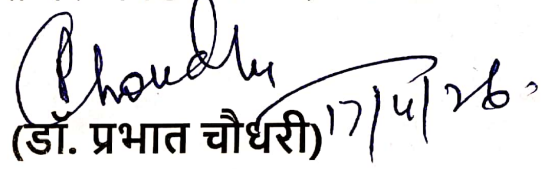 Choudhy
(डॉ. प्रभात चौधरी) 17/4/26.